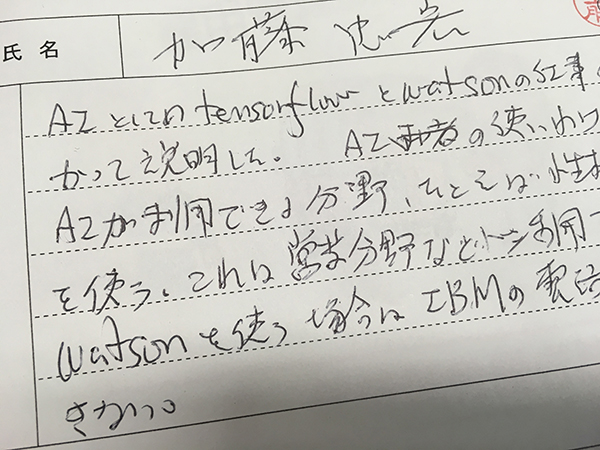 氏名 加藤忠宏
AIとしてはtensorflowとwatsonの紅茶
かって説明した。 AI両者の使いわけ
AIが利用できる分野、たとえば性格
を使う、これは営業分野などで利用
watsonを使う場合はIBMの電話
きない。